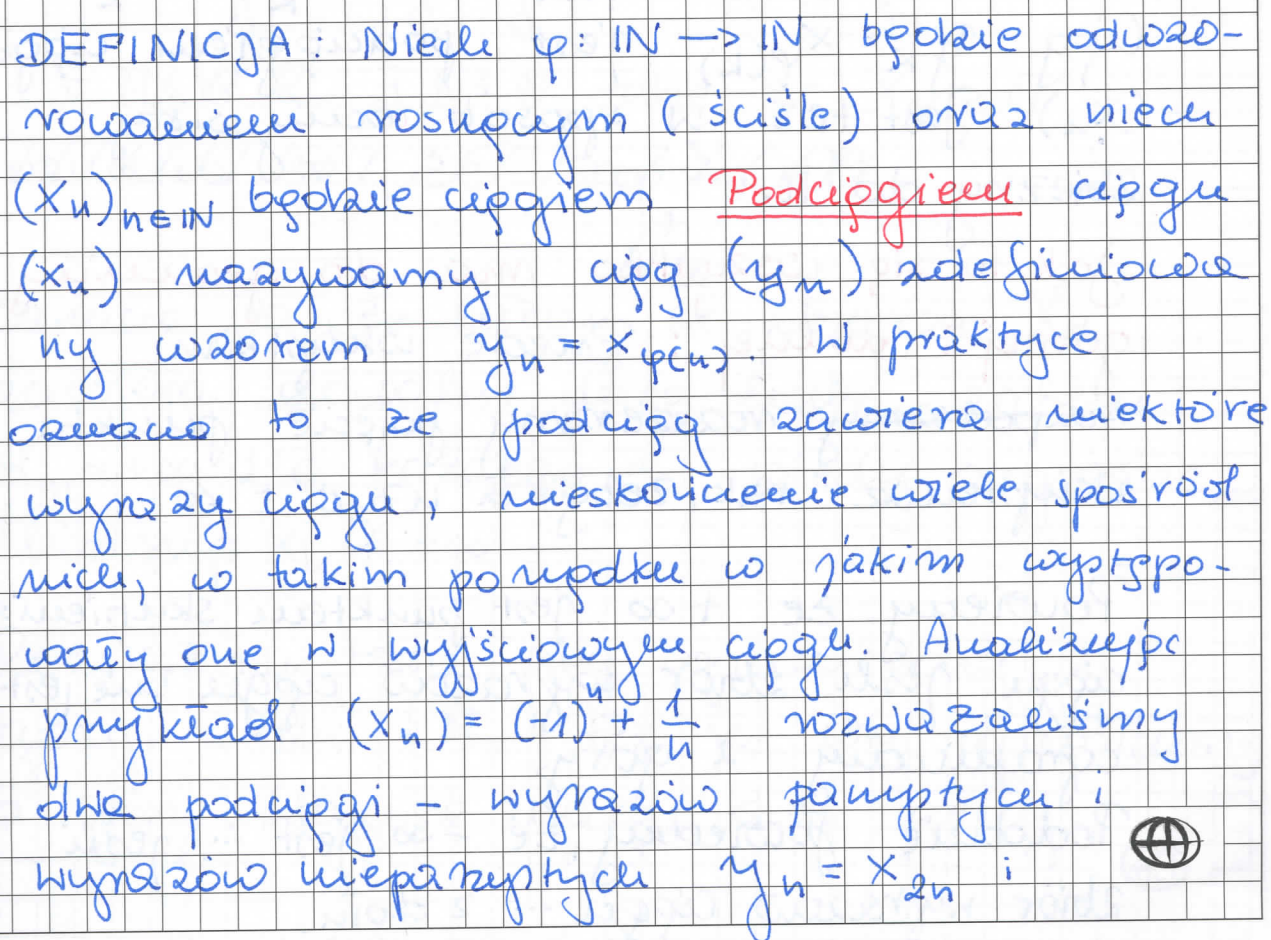 DEFINICJA: Niech φ: IN → IN będzie odwzo-
rowaniem rosnącym (ściśle) oraz niech
(xₙ)ₙ∈IN będzie ciągiem Podciągiem ciągu
(xₙ) nazywamy ciąg (yₙ) zdefiniowa
ny wzorem yₙ = x_φ(n). W praktyce
oznacza to ze podciąg zawiera niektóre
wyrazy ciągu, nieskończenie wiele spośród
nich, w takim porządku w jakim występo-
wały one w wyjściowym ciągu. Analizując
przykład (xₙ) = (-1)ⁿ + 1/n rozważaliśmy
dwa podciągi - wyrazów parzystych i
wyrazów nieparzystych yₙ = x₂ₙ i